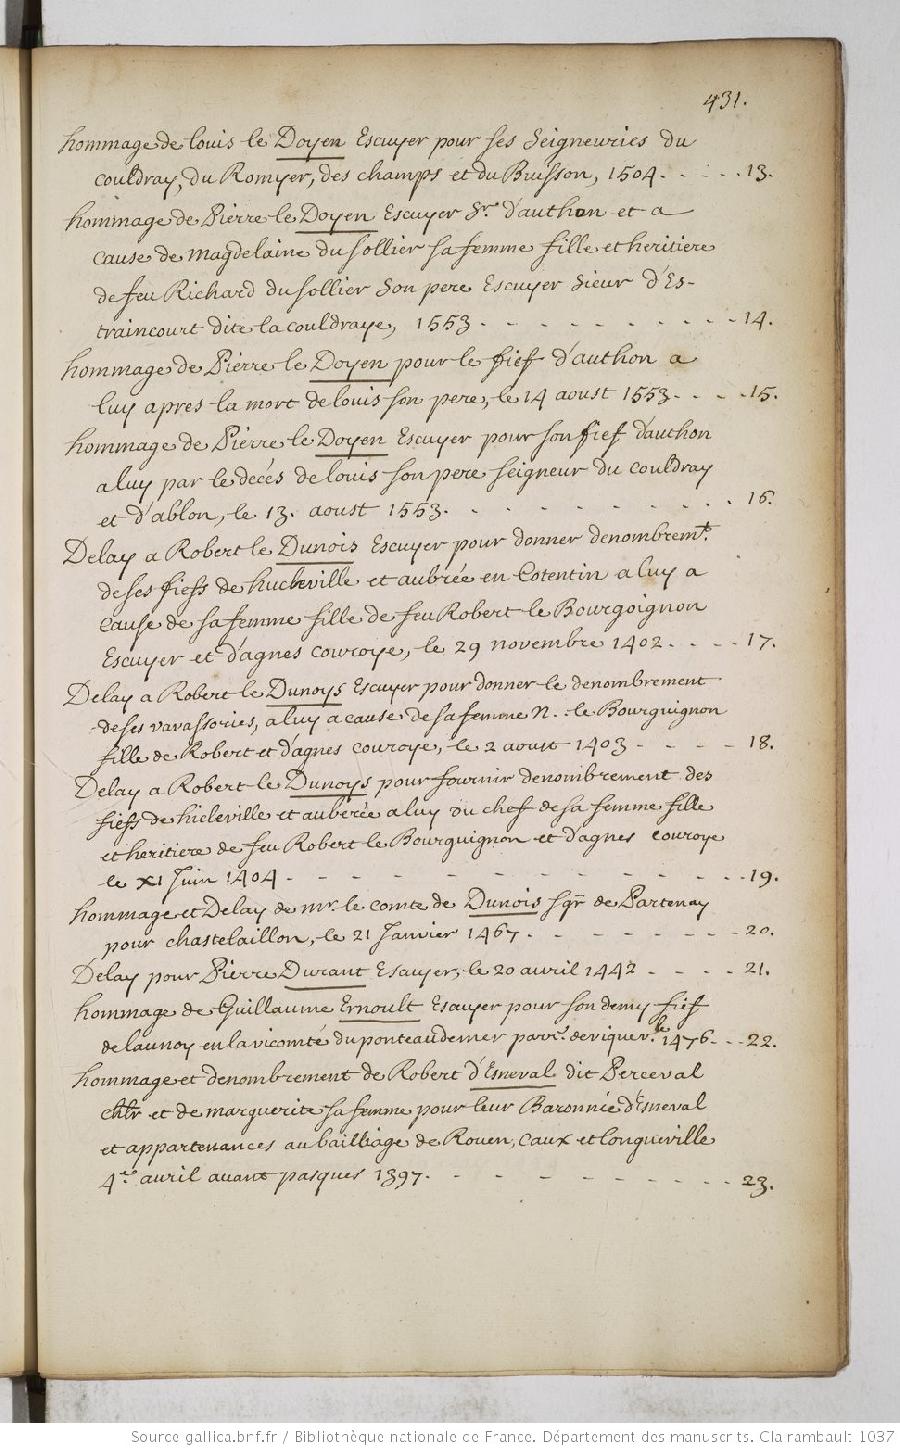 431.
hommage de louis le Doyen Escuyer pour ses Seigneuries du
couldray, du Romyer, des champs et du Buisson, 1504. - - - - - 13.
hommage de Pierre le Doyen Escuyer Sr. d'authon et a
cause de magdelaine du sollier sa femme fille et heritiere
de feu Richard du sollier Son pere Escuyer Sieur d'Es-
traincourt dit la couldraye, 1553. - - - - - - - - - 14.
hommage de Pierre le Doyen pour le fief d'authon a
luy apres la mort de louis son pere, le 14 aoust 1553. - - - 15.
hommage de Pierre le Doyen Escuyer pour son fief d'authon
a luy par le decés de louis son pere seigneur du couldray
et d'ablon, le 13. aoust 1553. - - - - - - - - - 16.
Delay a Robert le Dunois Escuyer pour donner denombremt.
de ses fiefs de hucleville et aubrée en Cotentin a luy a
cause de sa femme fille de feu Robert le Bourgoignon
Escuyer et d'agnes couroye, le 29 novembre 1402. - - - - 17.
Delay a Robert le Dunoys Escuyer pour donner le denombrement
de ses varassories, a luy a cause de sa femme N. le Bourguignon
fille de Robert et d'agnes couroye, le 2 aoust 1403 - - - - 18.
Delay a Robert le Dunoys pour fournir denombrement des
fiefs de hicleville et auberée a luy du chef de sa femme fille
et heritiere de feu Robert le Bourguignon et d'agnes couroye
le XI Juin 1404. - - - - - - - - - - - - - 19.
hommage et Delay de mr. le comte de Dunois sgr de Partenay
pour chastelaillon, le 21 Janvier 1467. - - - - - - - 20.
Delay pour Pierre Durant Escuyer, le 20 avril 1442 - - - - 21.
hommage de Guillaume Ernoult Escuyer pour son demy fief
de launoy en la vicomté du ponteaudemer parr. de 1476. - - 22.
hommage et denombrement de Robert d'Esneval dit Perceval
chlr et de marguerite sa femme pour leur Baronnée d'Esneval
et appartenances au bailliage de Rouen, Caux et longueville
4.e avril avant pasques 1397. - - - - - - - - 23.
Source gallica.bnf.fr / Bibliothèque nationale de France. Département des manuscrits. Clairambault 1037